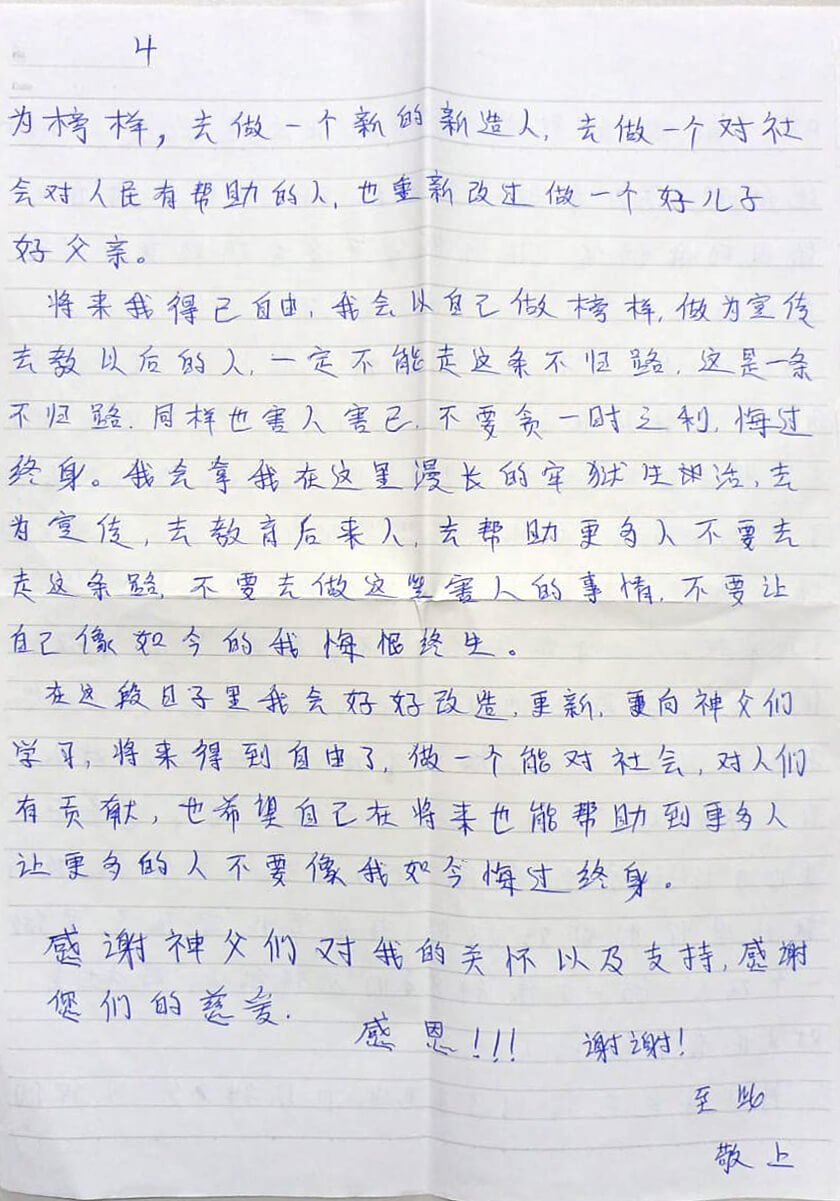 4
为榜样，去做一个新的新造人，去做一个对社
会对人民有帮助的人，也重新改过做一个好儿子
好父亲。
将来我得已自由，我会以自己做榜样，做为宣传
去教以后的人，一定不能走这条不归路，这是一条
不归路，同样也害人害已，不要贪一时之利，悔过
终身。我会拿我在这里漫长的牢狱生活，去
为宣传，去教育后来人，去帮助更多人不要去
走这条路，不要去做这些害人的事情，不要让
自己像如今的我悔恨终生。
在这段日子里我会好好改造，更新，更向神父们
学习，将来得到自由了，做一个能对社会，对人们
有贡献，也希望自己在将来也能帮助到更多人
让更多的人不要像我如今悔过终身。
感谢神父们对我的关怀以及支持，感谢
您们的慈爱.
感恩!!! 谢谢!
至此
敬上